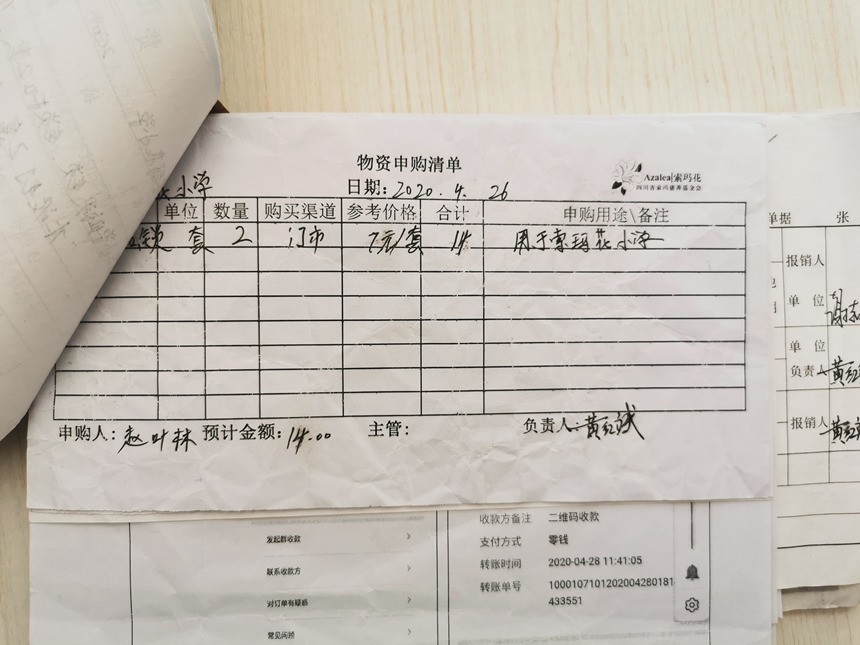 物资申购清单
Azalea|索玛花
四川省索玛慈善基金会
小学
日期:2020.4.26
单位 数量 购买渠道 参考价格 合计 申购用途\备注
锁 套 2 门市 7元/套 14 用于索玛花小学
申购人:赵叶林 预计金额:14.00 主管: 负责人:黄红斌
单据 张
报销人
单 位
单 位
负责人 黄红
报销人 黄红斌
发起群收款
联系收款方
对订单有疑惑
常见问题
收款方备注 二维码收款
支付方式 零钱
转账时间 2020-04-28 11:41:05
转账单号 1000107101202004280181
433551